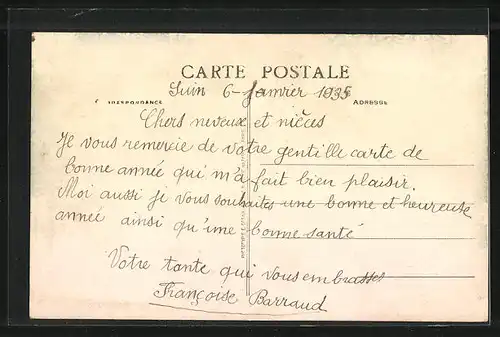 CARTE POSTALE
Juin 6 - Janvier 1935
CORRESPONDANCE ADRESSE
Chers neveux et nièces
Je vous remercie de votre gentille carte de
bonne année qui m'a fait bien plaisir.
Moi aussi je vous souhaites une bonne et heureuse
année ainsi qu'une bonne santé
Votre tante qui vous embrasses
Françoise Barraud